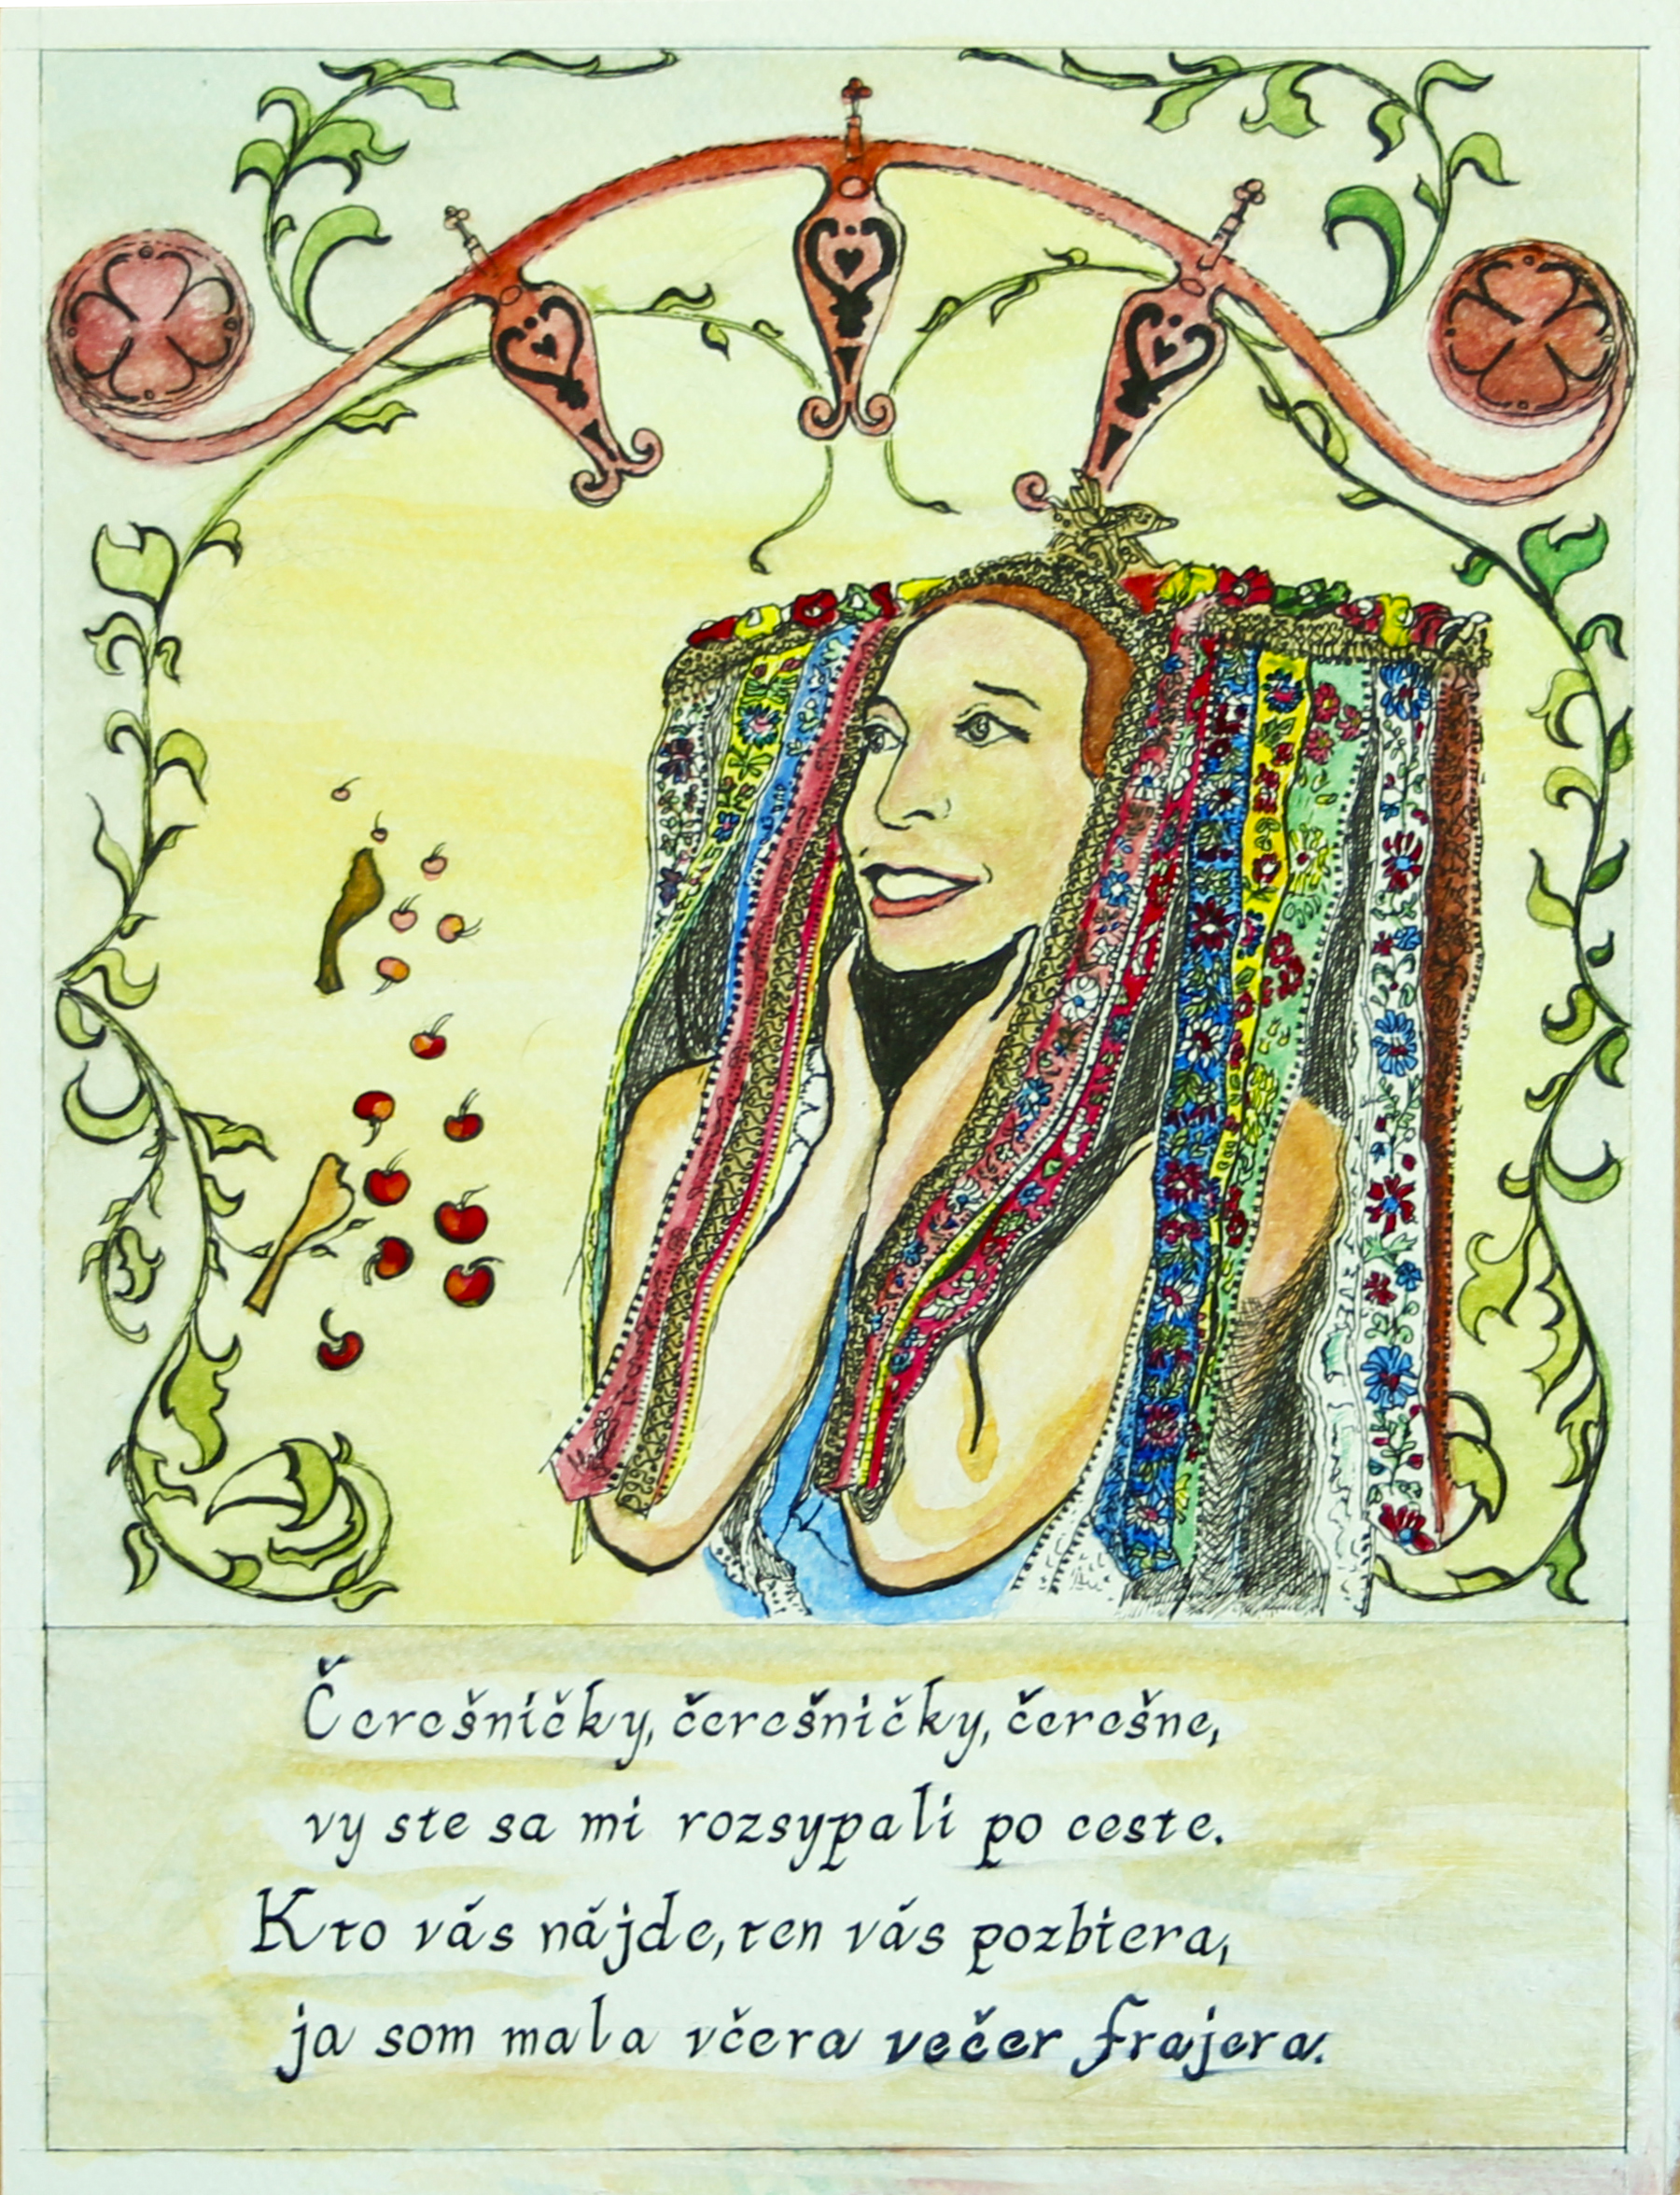 Čerešničky, čerešničky, čerešne,
vy ste sa mi rozsypali po ceste.
Kto vás nájde, ten vás pozbiera,
ja som mala včera večer frajera.